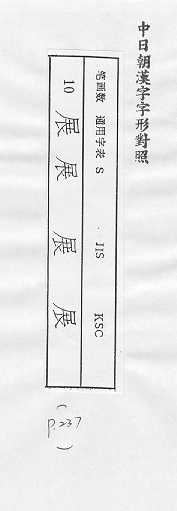 中日朝漢字字形對照
笔画数 通用字表 S JIS KSC
10 展 展 展 展
(p.237)